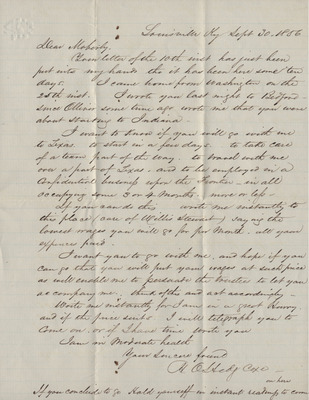 Louisville Ky Sept 30. 1856
Dear Moberly
Your letter of the 10th inst has just been
put into my hands tho it has been here some ten
days. I came home from Washington on the
25th inst. I wrote you last night to Bedford
since Oliver some time ago wrote me that you were
about starting to Indiana.
I want to know if you will go with me
to Texas. to start in a few days. to take care
of a team part of the way. to travel with me
over a part of Texas. and to be employed in a
Confidential business upon the Frontier. in all
occupying some 3 or 4 Months. more or less.
If you can do this wrote me instantly to
this place (care of Willis Stewart) saying the
lowest wages you will go for per Month. all your
expences paid.
I want you to go with me, and hope if you
can go that you will put your wages at such price
as will enable me to persuade the trustees to let you
accompany me. think of this and act accordingly.
Write me instantly for I am in a great Hurry.
and if the price suits. I will telegraph you to
come on, or if I have time wrote you
I am in Moderate health
Your sincere friend
H. O. Hedgcoxe
over
If you conclude to go Hold yourself in instant readiness to come